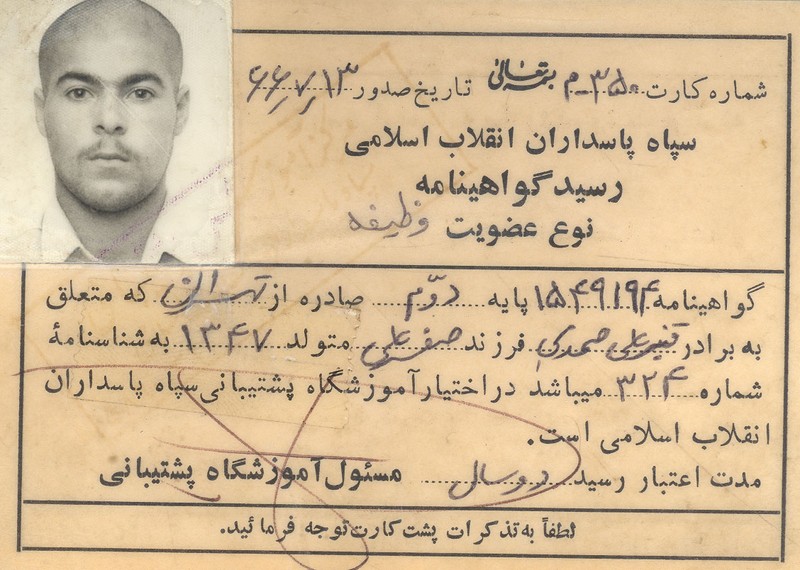 شماره کارت ۳۵۰-م بسمه تعالی تاریخ صدور ۶۶/۷/۱۳
سپاه پاسداران انقلاب اسلامی
رسید گواهینامه
نوع عضویت وظیفه
گواهینامه ۱۵۴۹۱۹۴ پایه دوّم صادره از که متعلق
به برادر قنبر علی صمدی فرزند صفر علی متولد ۱۳۴۷ به شناسنامهٔ
شماره ۳۲۴ میباشد در اختیار آموزشگاه پشتیبانی سپاه پاسداران
انقلاب اسلامی است.
مدت اعتبار رسید دو سال مسئول آموزشگاه پشتیبانی
لطفاً به تذکرات پشت کارت توجه فرمائید.